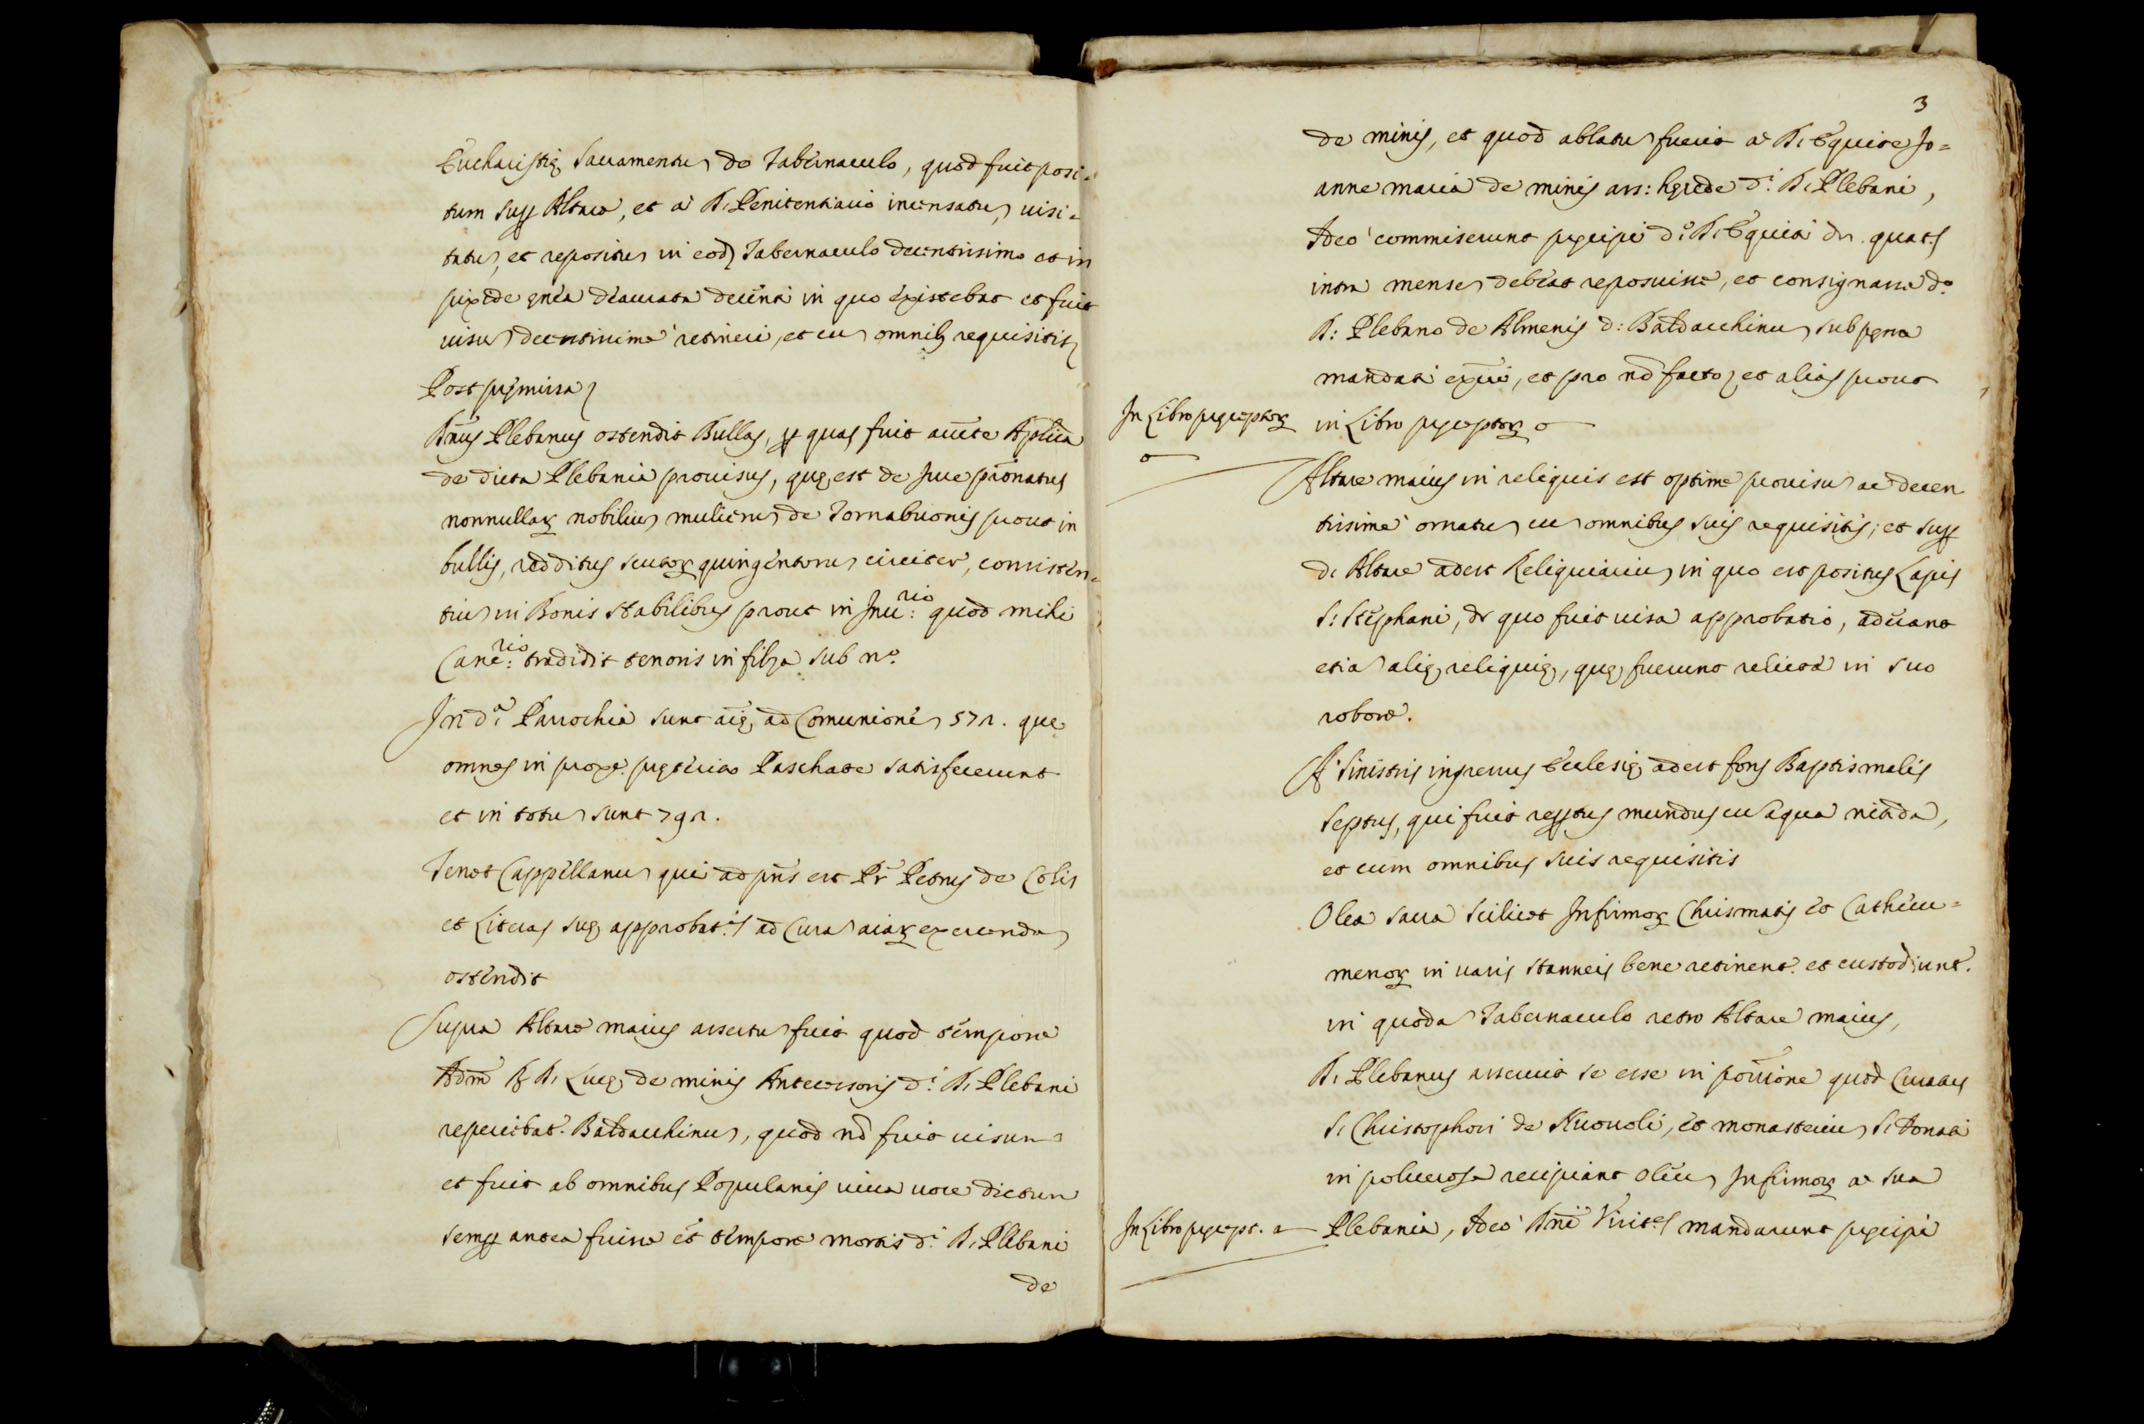 Eucharistię Sacramentu de Tabernaculo, quod fuit posi=
tum sup Altare, et à R. Penitentiario incensatu, visi=
tatu, et repositu in eod Tabernaculo decentissimo et in
pixide decenti in quo existebat et fuit
visu decentissime retineri, et cu omnib requisitis
Post premissa
Rnus Plebanus ostendit Bullas, p quas fuit aucte Aplica
de dicta Plebania provisus, quę est de Jure pronatus
nonnullar nobiliu mulieru de Tornabuonis prout in
bullis, redditus scutor quingentoru circiter, consisten=
tiu in Bonis stabilibus prout in Inu:rio quod mihi
Canc:rio tradidit tenoris in filza sub n.o
In d.a Parrochia sunt aię ad Comunione 571. que
omnes in prox.o pręterito Paschate satisfecerunt
et in totu sunt 791.
Tenet Cappellanu qui ad pns est Pr Petrus de Colis
et Literas suę approbat.s ad Cura aiar exercenda
ostendit
Supra Altare maius assertu fuit quod tempore
Adm R. R. Lucę de minis Antecessoris d.i R. Plebani
reperiebat. Baldacchinu, quod nō fuit visum
et fuit ab omnibus Popularis viva voce dictum
semp antea fuisse et tempore mortis d.i R. Plebani
de
3
de minis, et quod ablatu fuerit a R. Equite Jo=
anne maria de minis ass: hęrede d.i R. Plebani,
Ideo commiserunt pręcipi d.o R. Equiti dn. quat.s
intra mense debeat reposuisse, et consignasse d.o
R: Plebano de Almenis d: Baldacchinu sub pęna
mandati exvi, et pro nō facto et alias prout
In Libro pręceptor
in Libro pręceptor
Altare maius in reliquis est optime provisu ac decen
tissime ornatu cu omnibus suis requisitis; et sup
d. Altare adest Reliquiariu in quo est positus Lapis
S: Stephani, de quo fuit visa approbatio, aderant
etia alię reliquię, quę fuerunt relictę in suo
robore.
A sinistris ingressus Ecclesię adest fons Baptismalis
septus, qui fuit reptus mundus cu aqua nitida,
et cum omnibus suis requisitis
Olea sacra scilicet Infirmor Chrismatis et Cathecu=
menor in vasis stanneis bene retinent. et custodiunt.
in quoda Tabernaculo retro Altare maius,
R. Plebanus asseruit se esse in possione quod Curatus
S. Christophori de Nuovoli, et monasteriu S. Donati
in polverosa recipiant oleu Infirmor a sua
In Libro pręcept.
Plebania, Ideo Rni Visit.s mandarunt pręcipi